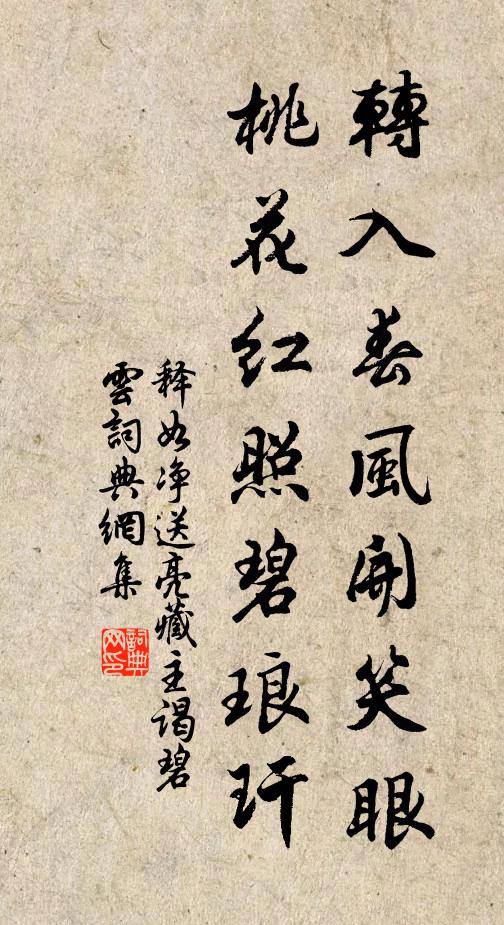 轉入春風開笑眼
桃花紅照碧琅玕
释如净送亮藏主謁碧
雲詞典網集
詞典
网印